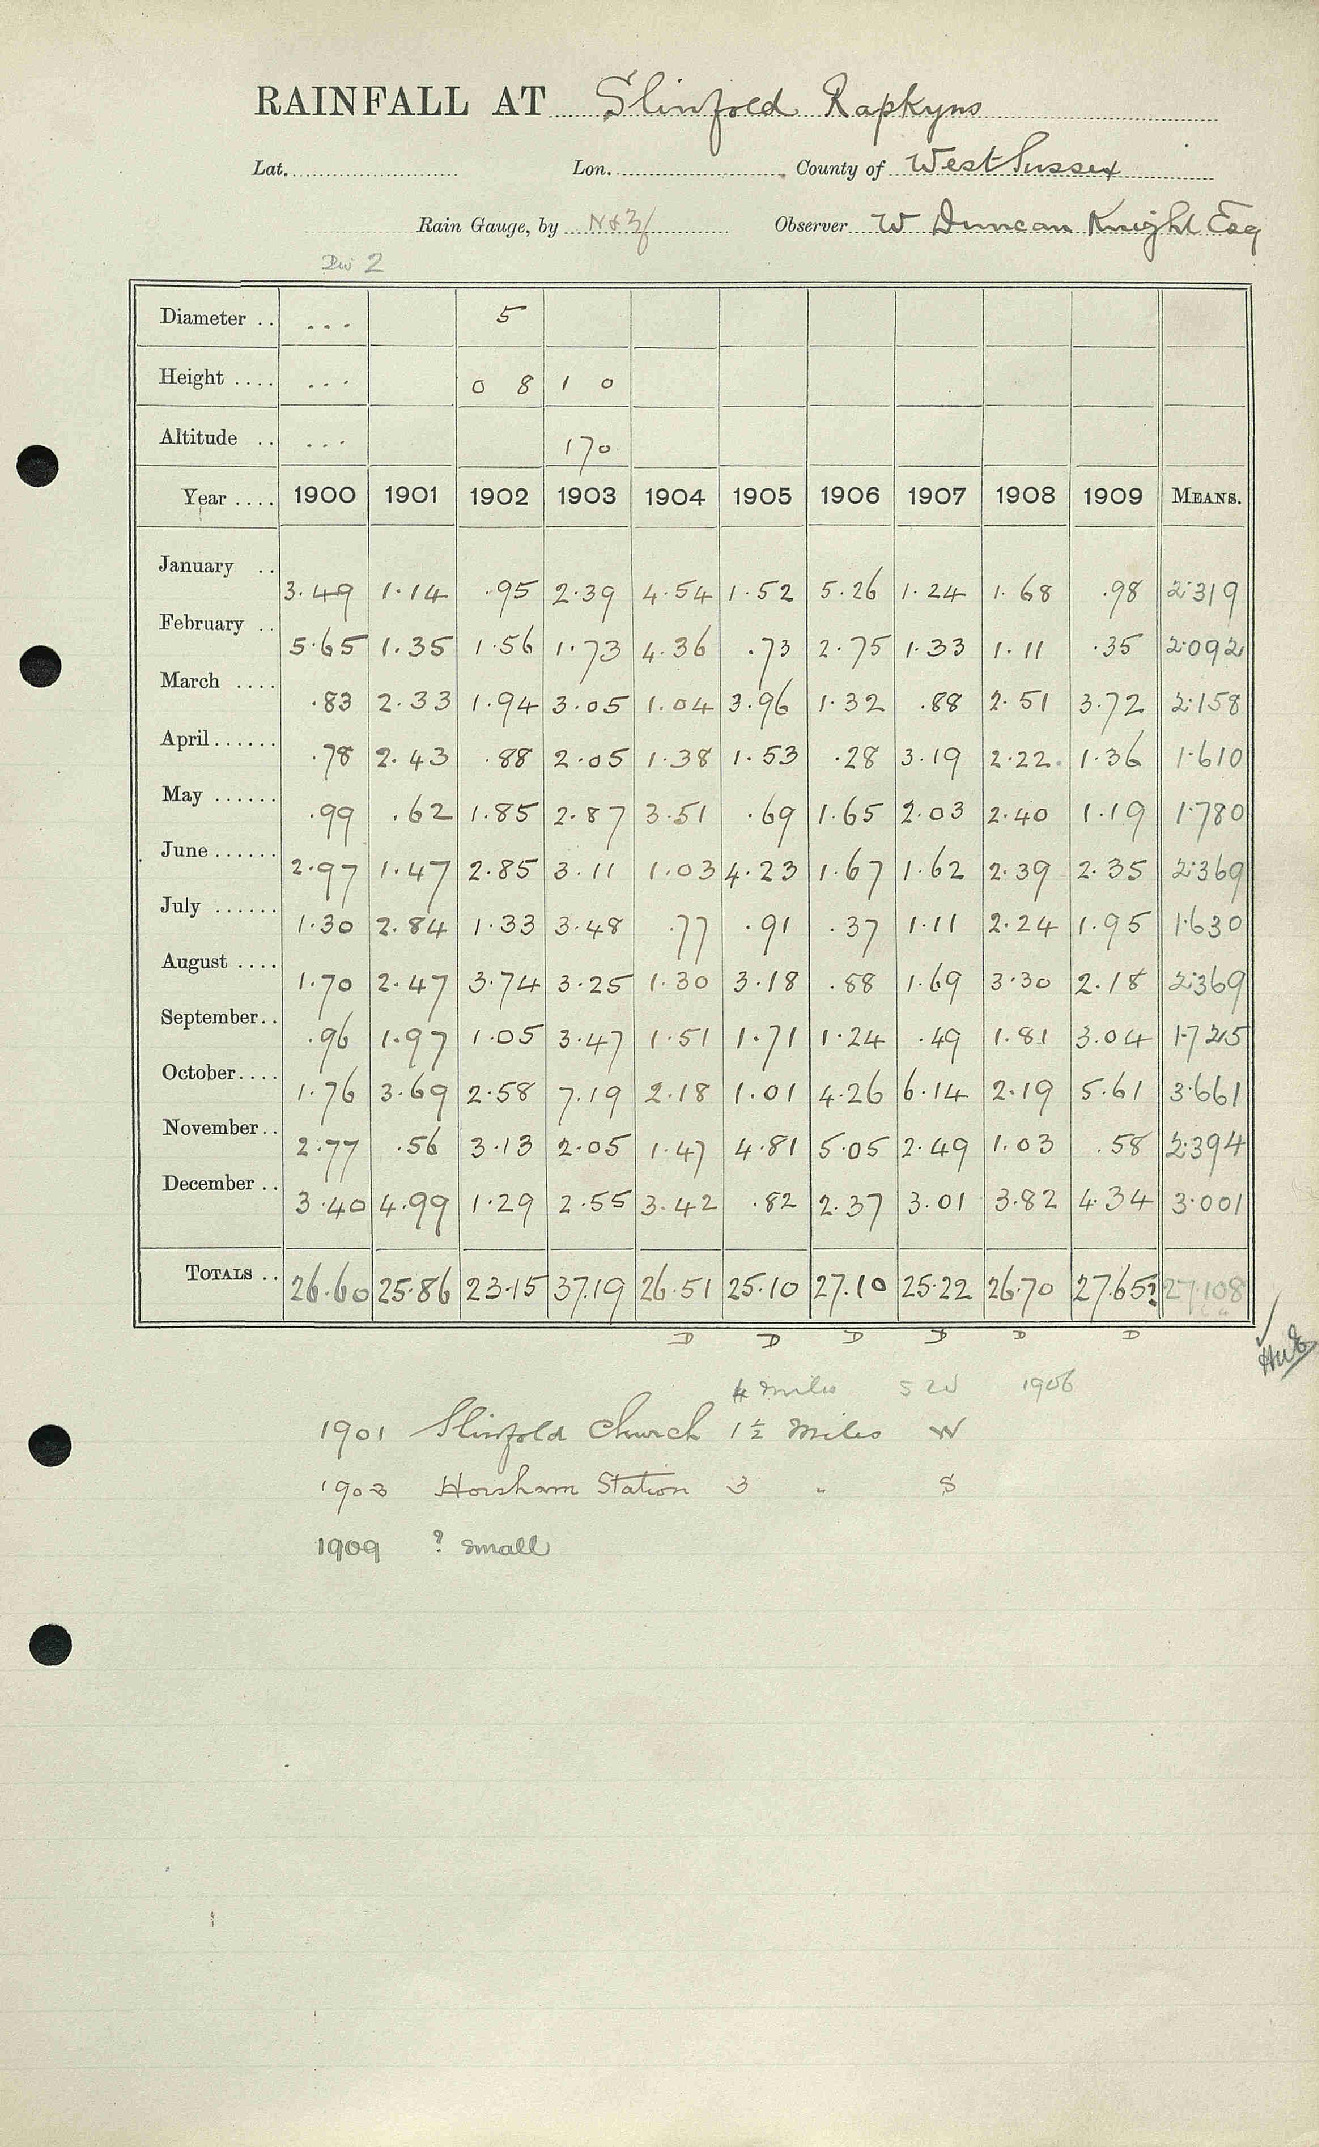 RAINFALL AT Slinfold Rapkyns
Lat. Lon. County of West Sussex
Rain Gauge, by N & Z Observer W Duncan Knight Esq
Div 2
Diameter .. ... 5
Height .... ... 0 8 1 0
Altitude .. ... 170
Year .... 1900 1901 1902 1903 1904 1905 1906 1907 1908 1909 MEANS.
January .. 3.49 1.14 .95 2.39 4.54 1.52 5.26 1.24 1.68 .98 2.319
February .. 5.65 1.35 1.56 1.73 4.36 .73 2.75 1.33 1.11 .35 2.092
March .... .83 2.33 1.94 3.05 1.04 3.96 1.32 .88 2.51 3.72 2.158
April...... .78 2.43 .88 2.05 1.38 1.53 .28 3.19 2.22 1.36 1.610
May ...... .99 .62 1.85 2.87 3.51 .69 1.65 2.03 2.40 1.19 1.780
June...... 2.97 1.47 2.85 3.11 1.03 4.23 1.67 1.62 2.39 2.35 2.369
July ...... 1.30 2.84 1.33 3.48 .77 .91 .37 1.11 2.24 1.95 1.630
August .... 1.70 2.47 3.74 3.25 1.30 3.18 .88 1.69 3.30 2.18 2.369
September.. .96 1.97 1.05 3.47 1.51 1.71 1.24 .49 1.81 3.04 1.725
October.... 1.76 3.69 2.58 7.19 2.18 1.01 4.26 6.14 2.19 5.61 3.661
November.. 2.77 .56 3.13 2.05 1.47 4.81 5.05 2.49 1.03 .58 2.394
December .. 3.40 4.99 1.29 2.55 3.42 .82 2.37 3.01 3.82 4.34 3.001
TOTALS .. 26.60 25.86 23.15 37.19 26.51 25.10 27.10 25.22 26.70 27.65? 27.108
D D D D D D
4 miles S W 1906
1901 Slinfold Church 1½ Miles W
1903 Horsham Station 3 " S
1909 ? small